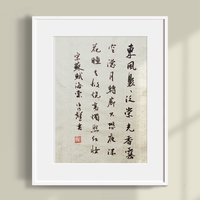 東風裊〻泛崇光香霧
空濛月轉廊只恐夜深
花睡去故燒高燭照紅妝
宋蘇軾海棠 書